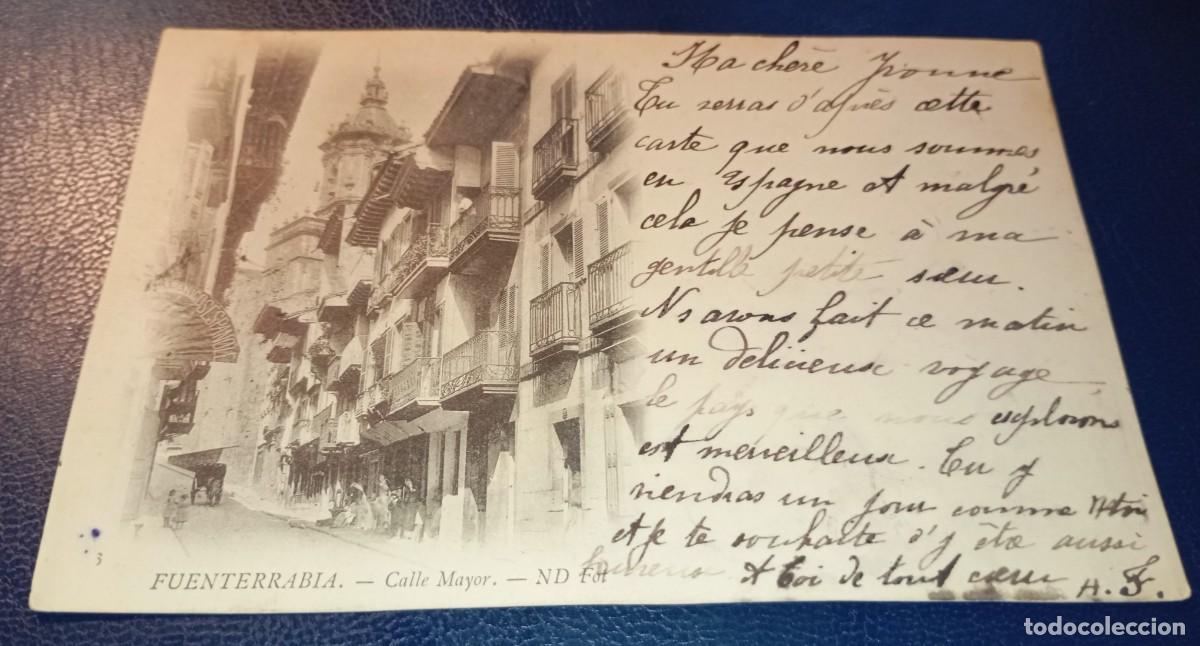 Ma chère Yvonne
Tu verras d'après cette
carte que nous sommes
en Espagne et malgré
cela je pense à ma
gentille petite sœur.
Ns avons fait ce matin
un délicieux voyage
le pays que nous explorons
est merveilleux. Tu y
viendras un jour comme
et je te souhaite d'y être aussi
heureux A toi de tout cœur
3
FUENTERRABIA. — Calle Mayor. — ND Fot
todocoleccion